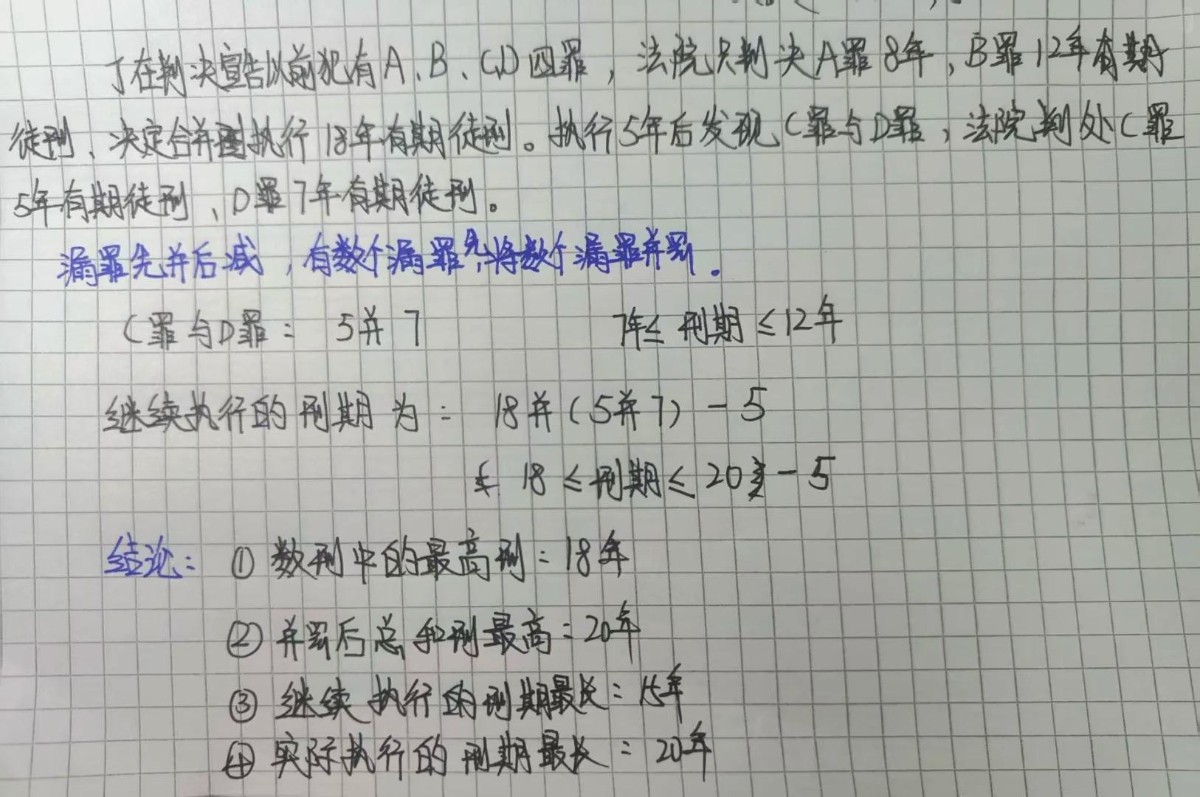 丁在判决宣告以前犯有A、B、C、D四罪，法院只判决A罪8年，B罪12年有期
徒刑、决定合并执行18年有期徒刑。执行5年后发现C罪与D罪，法院判处C罪
5年有期徒刑、D罪7年有期徒刑。
漏罪先并后减，有数个漏罪先将数个漏罪并罚。
C罪与D罪： 5并7 7年≤刑期≤12年
继续执行的刑期为： 18并（5并7）－5
18≤刑期≤20－5
结论：① 数刑中的最高刑：18年
② 并罚后总和刑最高：20年
③ 继续执行的刑期最长：15年
④ 实际执行的刑期最长：20年